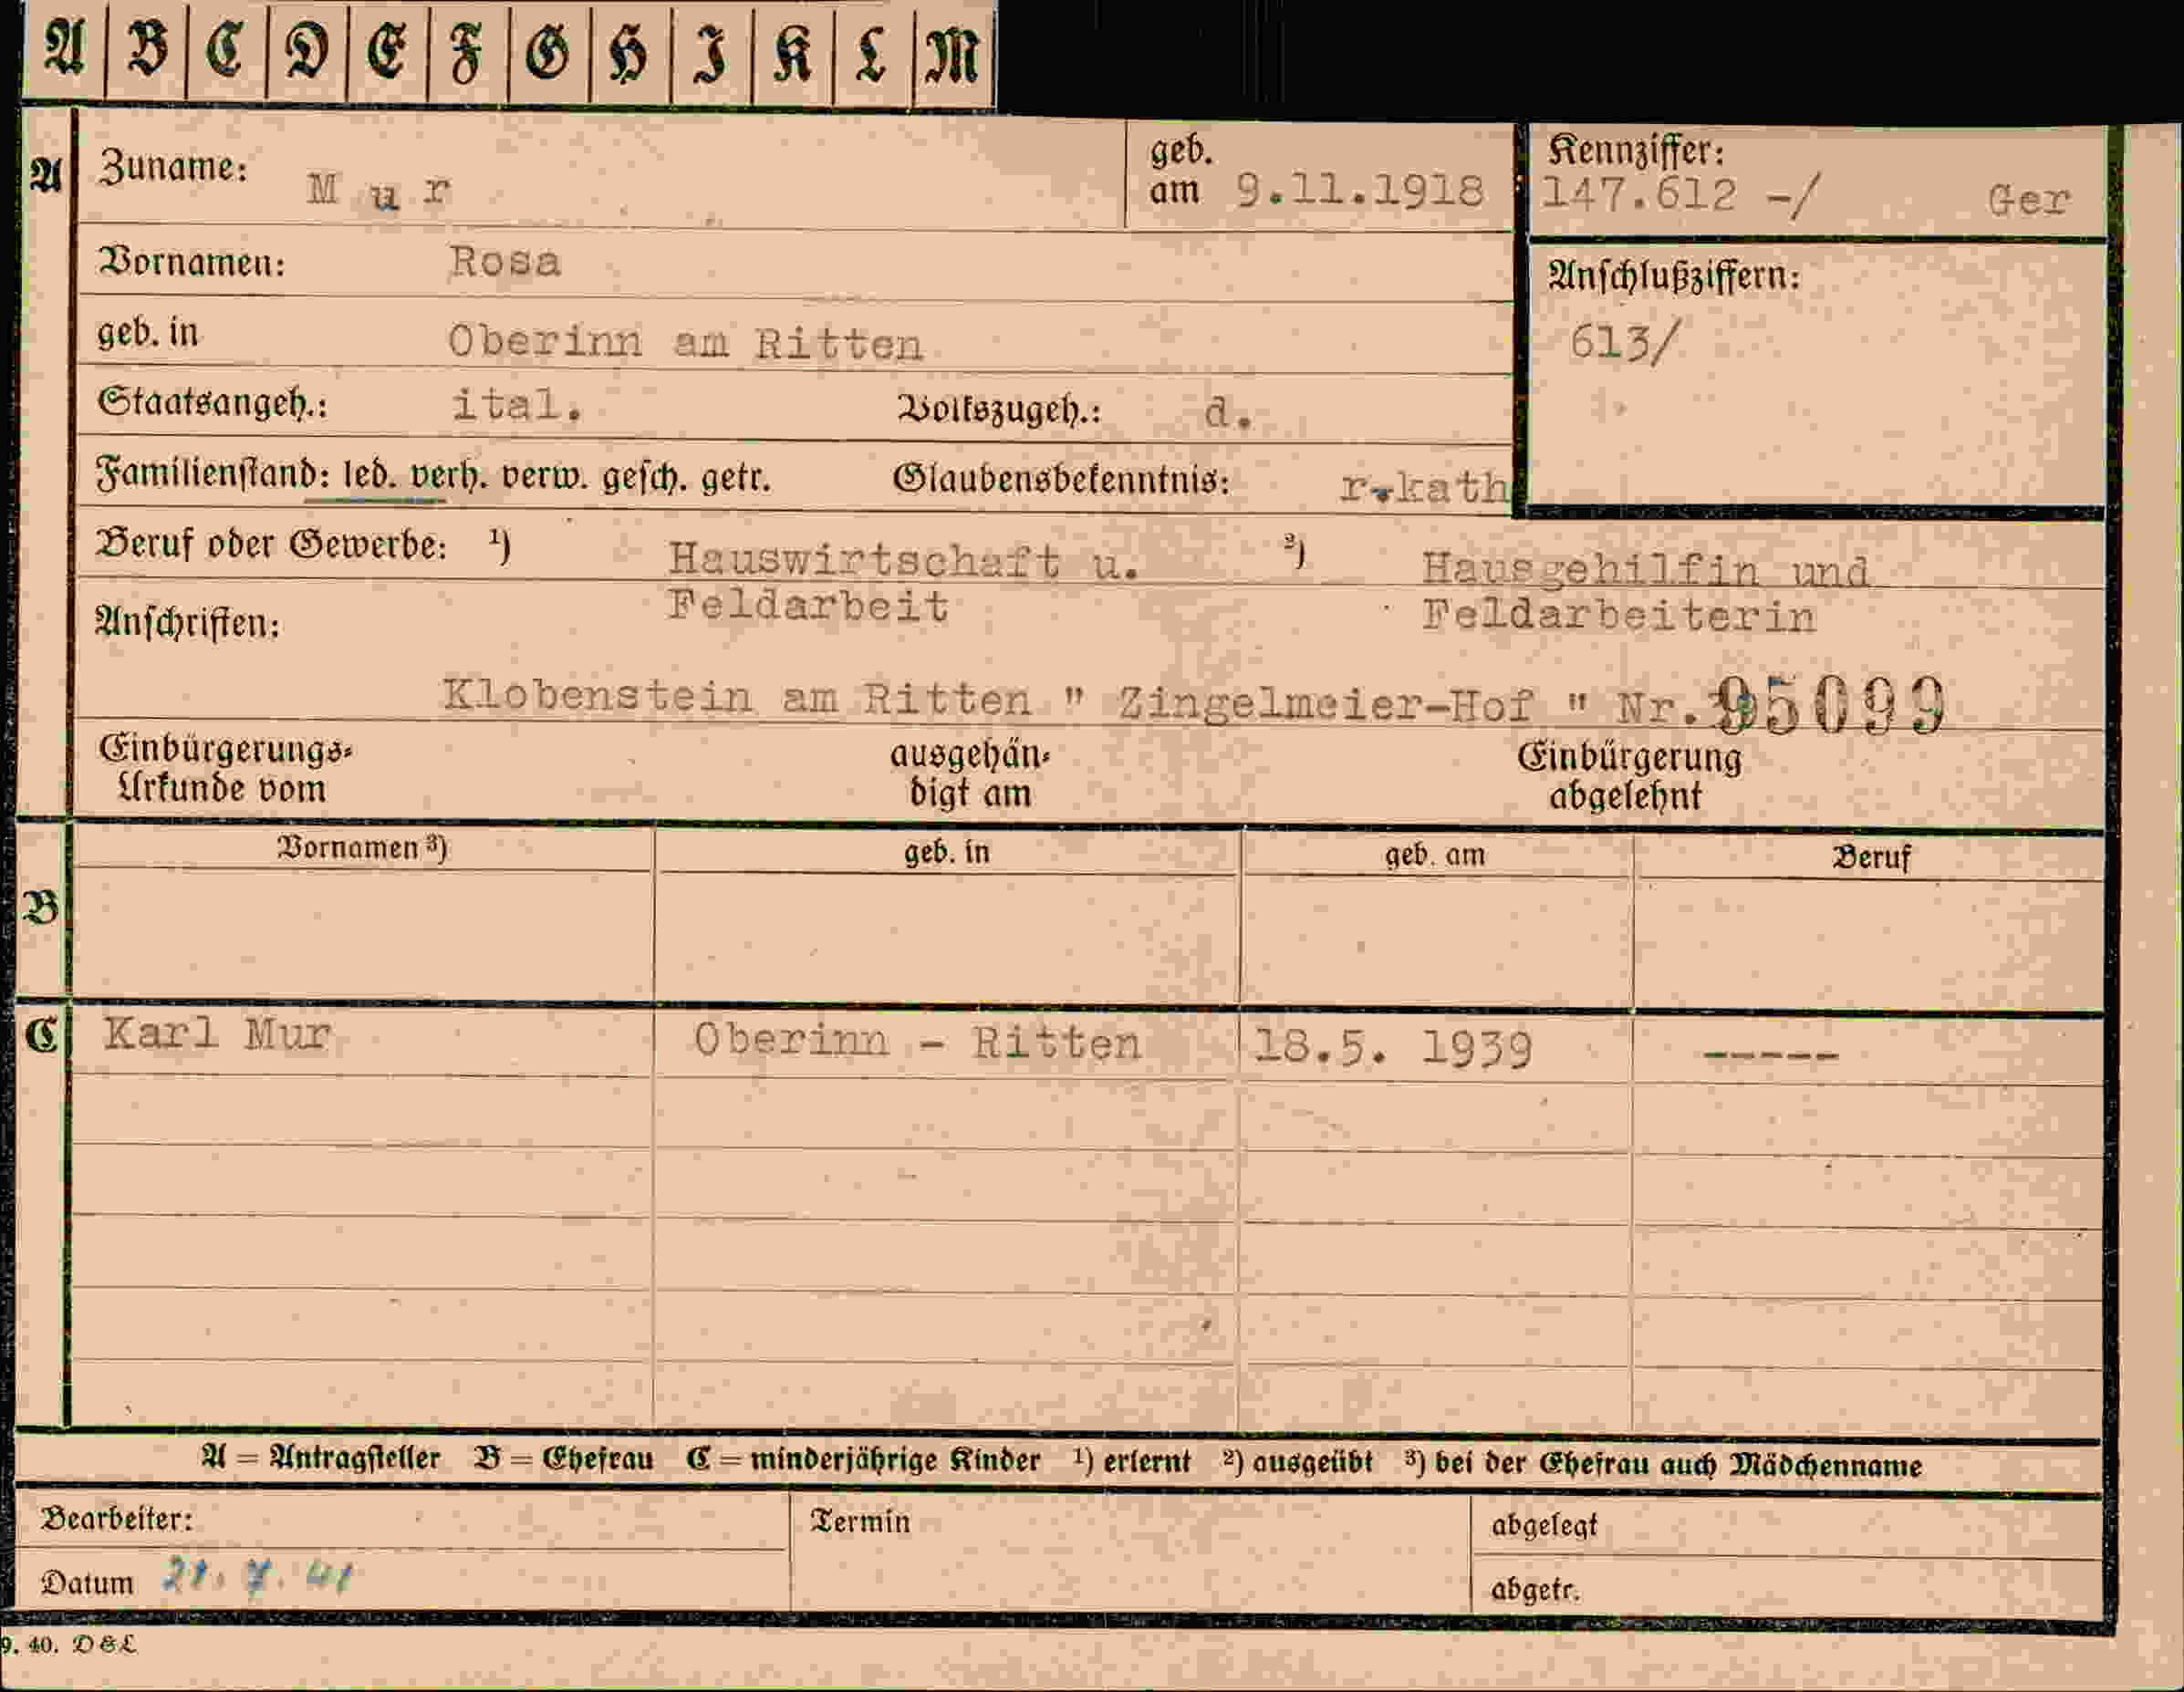 A B C D E F G H I K L M
A Zuname: M u r geb. am 9.11.1918
Kennziffer: 147.612 -/ Ger
Vornamen: Rosa
Anschlußziffern:
613/
geb. in Oberinn am Ritten
Staatsangeh.: ital. Volkszugeh.: d.
Familienstand: led. verh. verw. gesch. getr. Glaubensbekenntnis: r.kath
Beruf oder Gewerbe: ¹) Hauswirtschaft u. ²) Hausgehilfin und
Feldarbeit Feldarbeiterin
Anschriften:
Klobenstein am Ritten " Zingelmeier-Hof " Nr. 95099
Einbürgerungs- ausgehän- Einbürgerung
Urkunde vom digt am abgelehnt
Vornamen ³) geb. in geb. am Beruf
B
C Karl Mur Oberinn - Ritten 18.5. 1939 -----
A = Antragsteller B = Ehefrau C = minderjährige Kinder ¹) erlernt ²) ausgeübt ³) bei der Ehefrau auch Mädchenname
Bearbeiter: Termin abgelegt
Datum 21. 7. 41 abgetr.
9. 40. D&L